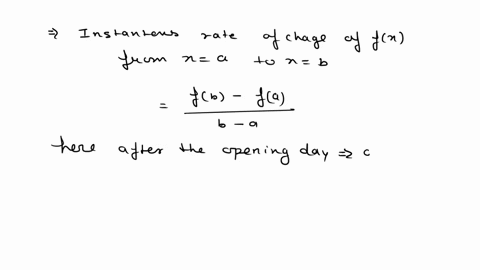 ⇒ Instantous rate of chage of f(x)
from x = a to x = b
= f(b) - f(a) / b - a
here after the opening day ⇒ c